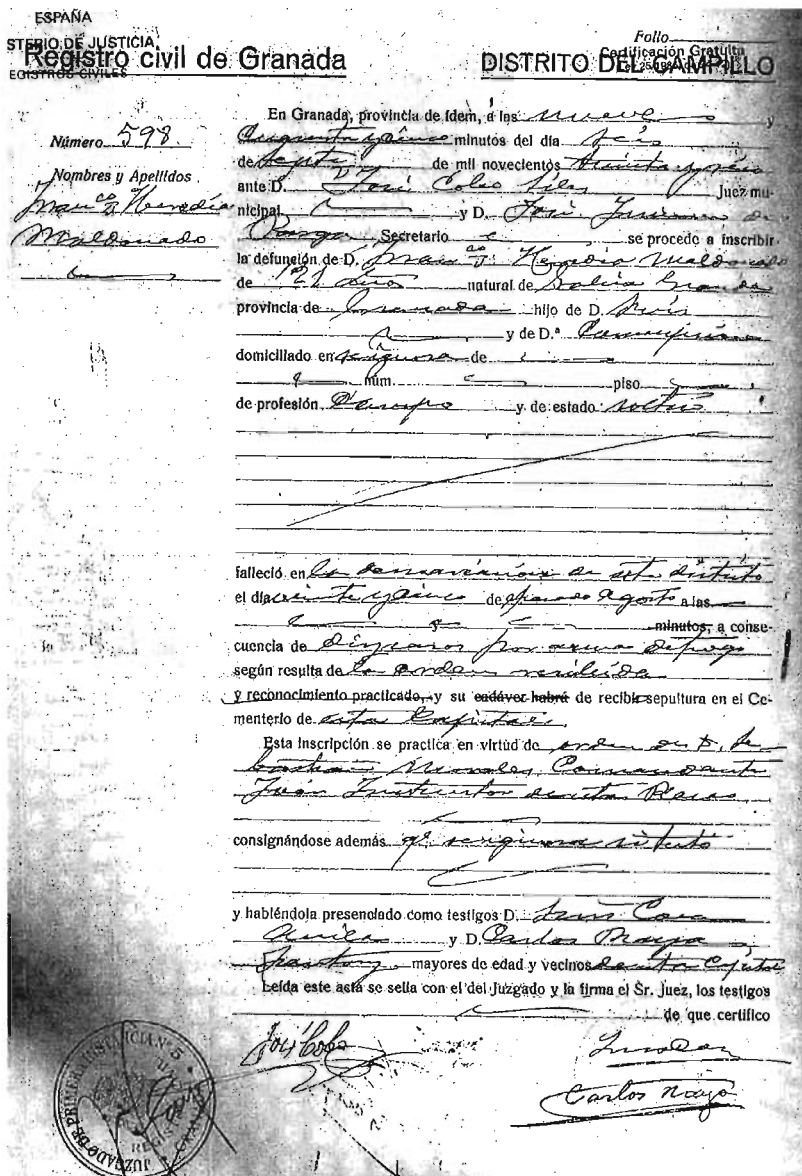 ESPAÑA
STERIO DE JUSTICIA
EGISTROS CIVILES
Registro civil de Granada
Folio
Certificación Gratuita
DISTRITO DEL CAMPILLO
Número 598.
Nombres y Apellidos
Franco Heredia
Maldonado
En Granada, provincia de idem, a las nueve y
cincuenta y cinco minutos del día seis
de Septe de mil novecientos treinta y seis
ante D. José Cobo Siles Juez mu-
nicipal y D. José Jimenez de
Parga Secretario se procede a inscribir
la defunción de D. Franco Heredia Maldonado
de 21 años natural de
provincia de Granada hijo de D. Luis
y de D.ª
domiciliado en se ignora de
núm. piso
de profesión Campo y de estado soltero
falleció en la demarcación de este distrito
el día veinte y cinco de pasado Agosto a las
y minutos, a conse-
cuencia de disparos por arma de fuego
según resulta de la orden recibida
y reconocimiento practicado, y su cadáver habrá de recibir sepultura en el Ce-
menterio de esta Capital
Esta inscripción se practica en virtud de orden de D. Se
bastian Morales Comandante
Juez Instructor de esta Plaza
consignándose además qe se ignora si testó
y habiéndola presenciado como testigos D. Luis
y D. Carlos
mayores de edad y vecinos de esta Capital
Leída este acta se sella con el del Juzgado y la firma el Sr. Juez, los testigos
de que certifico
José Cobo
Carlos
JUZGADO DE PRIMERA INSTANCIA Nº 5